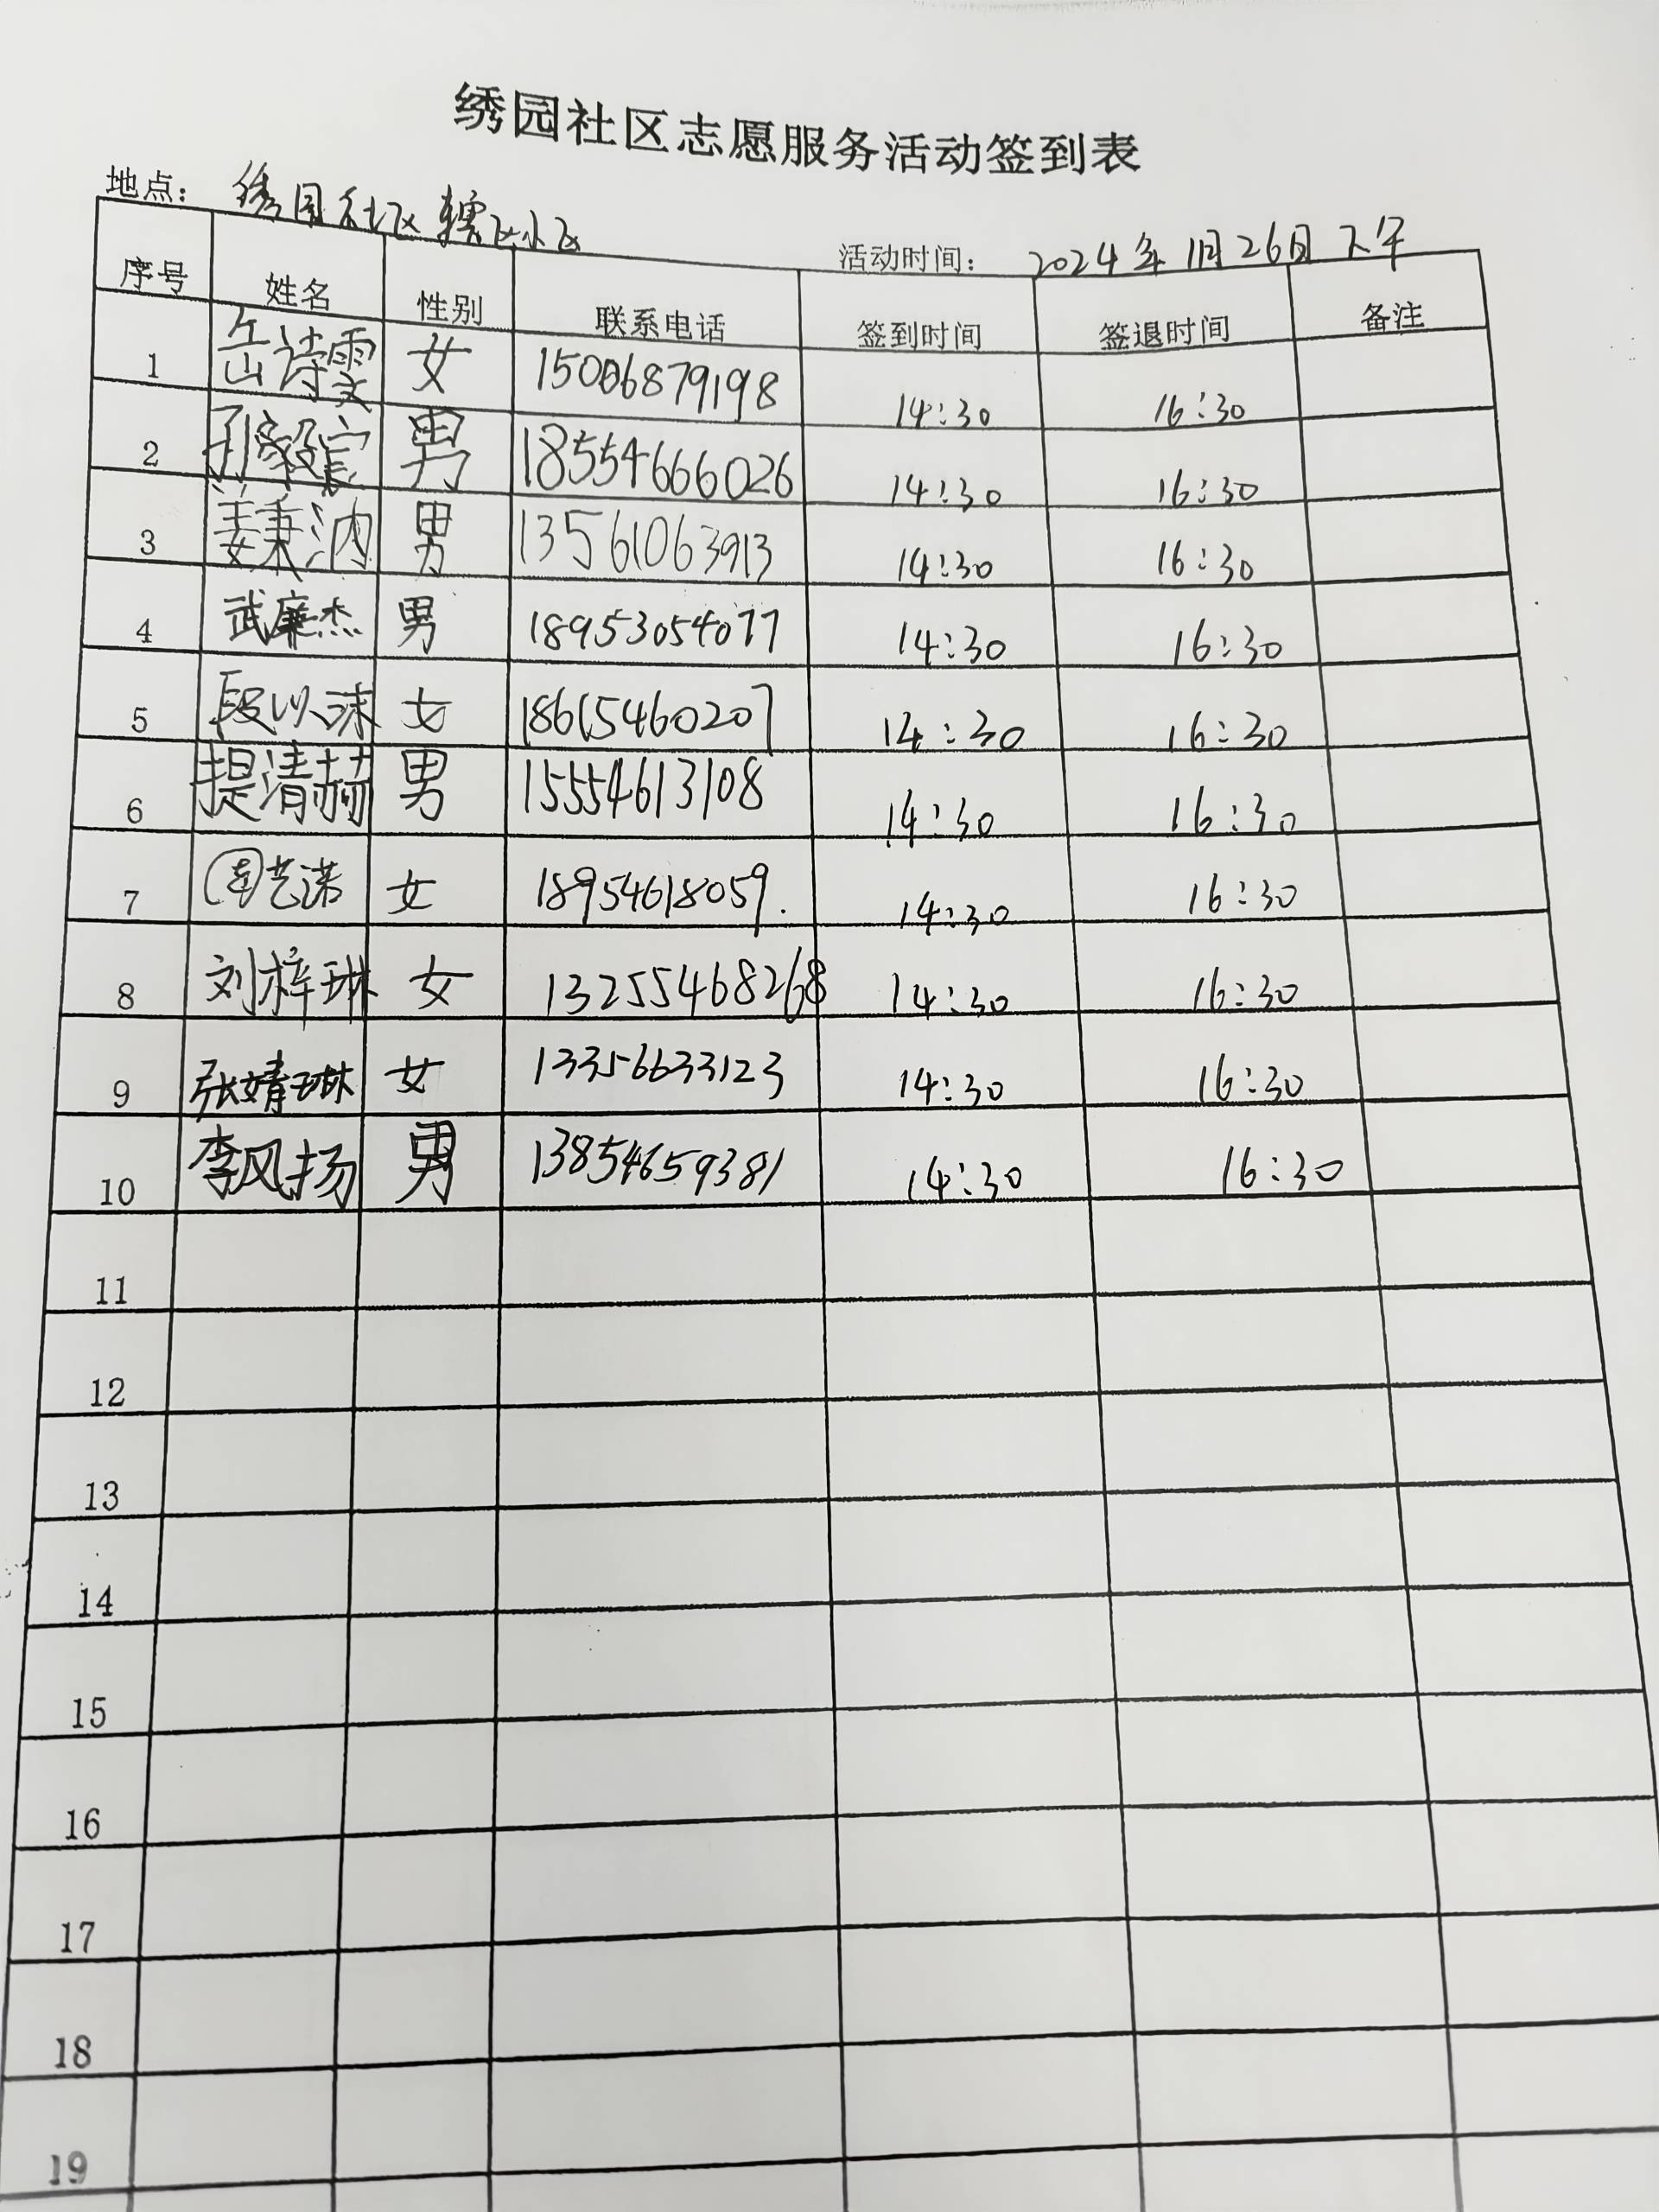 绣园社区志愿服务活动签到表
地点： 绣园社区辖区小区 活动时间： 2024年1月26日下午
序号 姓名 性别 联系电话 签到时间 签退时间 备注
1 岳诗雯 女 15006879198 14:30 16:30
2 孙毅宸 男 18554666026 14:30 16:30
3 姜秉汭 男 13561063913 14:30 16:30
4 武廉杰 男 18953054077 14:30 16:30
5 段以沫 女 18615460207 14:30 16:30
6 提清赫 男 15554613108 14:30 16:30
7 周艺诺 女 18954618059. 14:30 16:30
8 刘梓琳 女 13255468268 14:30 16:30
9 张婧琳 女 13356633123 14:30 16:30
10 李风扬 男 13854659381 14:30 16:30
11
12
13
14
15
16
17
18
19